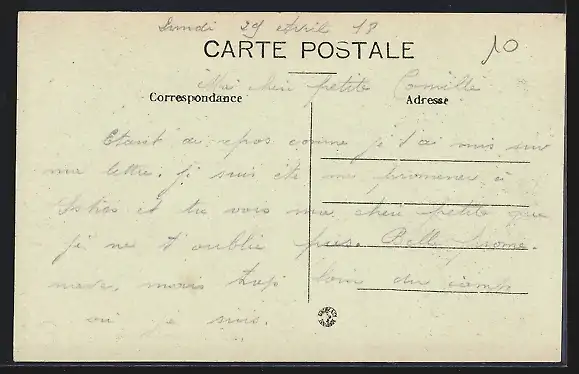 Lundi 29 Avril 18
CARTE POSTALE
10
Ma chère petite Camille
Correspondance
Adresse
Etant au repos comme je t'ai mis sur
ma lettre. Je suis été me promener à
et tu vois ma chère petite que
je ne t'oublie pas. Belle prome-
nade, mais trop loin du camp
où je suis.